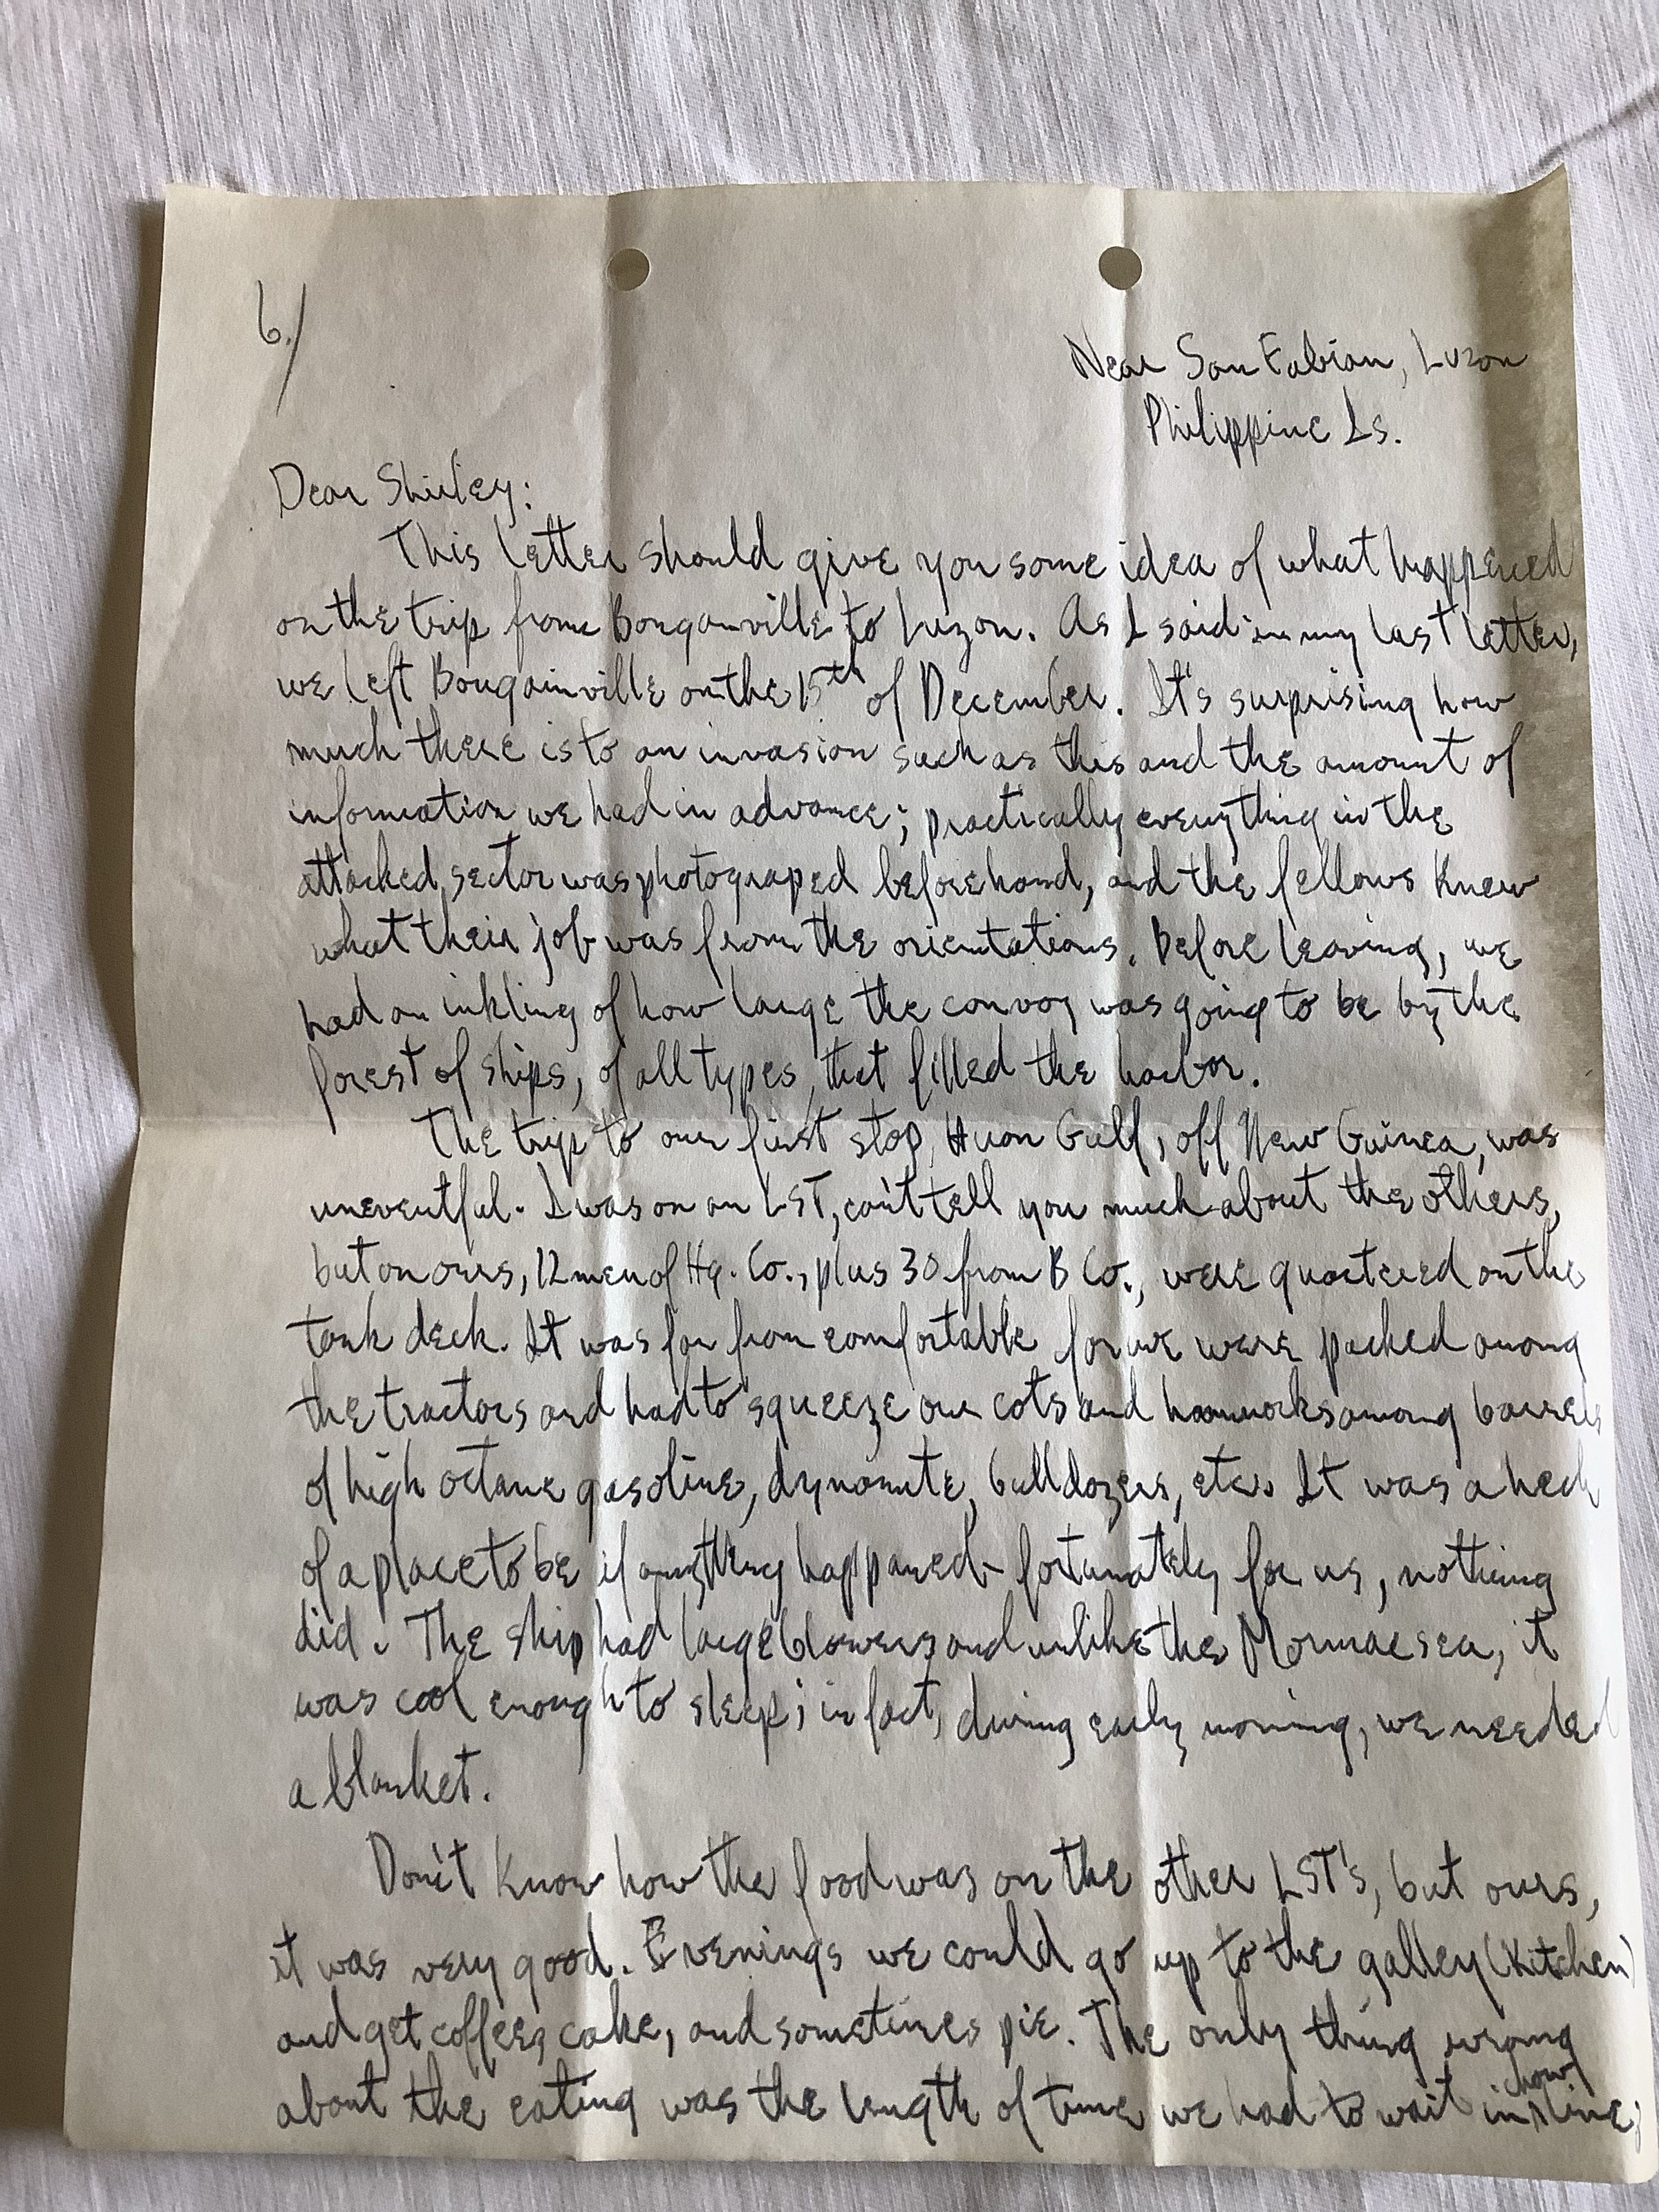 6./
Near San Fabian, Luzon
Philippine Is.
Dear Shirley:
This letter should give you some idea of what happened
on the trip from Bouganville to Luzon. As I said in my last letter,
we left Bougainville on the 15th of December. It's surprising how
much there is to an invasion such as this and the amount of
information we had in advance; practically everything in the
attacked sector was photograped beforehand, and the fellows knew
what their job was from the orientations. Before leaving, we
had an inkling of how large the convoy was going to be by the
forest of ships, of all types, that filled the harbor.
The trip to our first stop, Huon Gulf, off New Guinea, was
uneventful. I was on an LST, can't tell you much about the others,
but on ours, 12 men of Hq. Co., plus 30 from B Co., were quartered on the
tank deck. It was far from comfortable for we were packed among
the tractors and had to squeeze our cots and hammocks among barrels
of high octane gasoline, dynamite, bulldozers, etc. It was a heck
of a place to be if anything happaned - fortunately for us, nothing
did. The ship had large blowers and unlike the Mormacsea, it
was cool enough to sleep; in fact, during early morning, we needed
a blanket.
Don't know how the food was on the other LST's, but ours,
it was very good. Evenings we could go up to the galley (kitchen)
and get coffee, cake, and sometimes pie. The only thing wrong
about the eating was the length of time we had to wait in chow line;